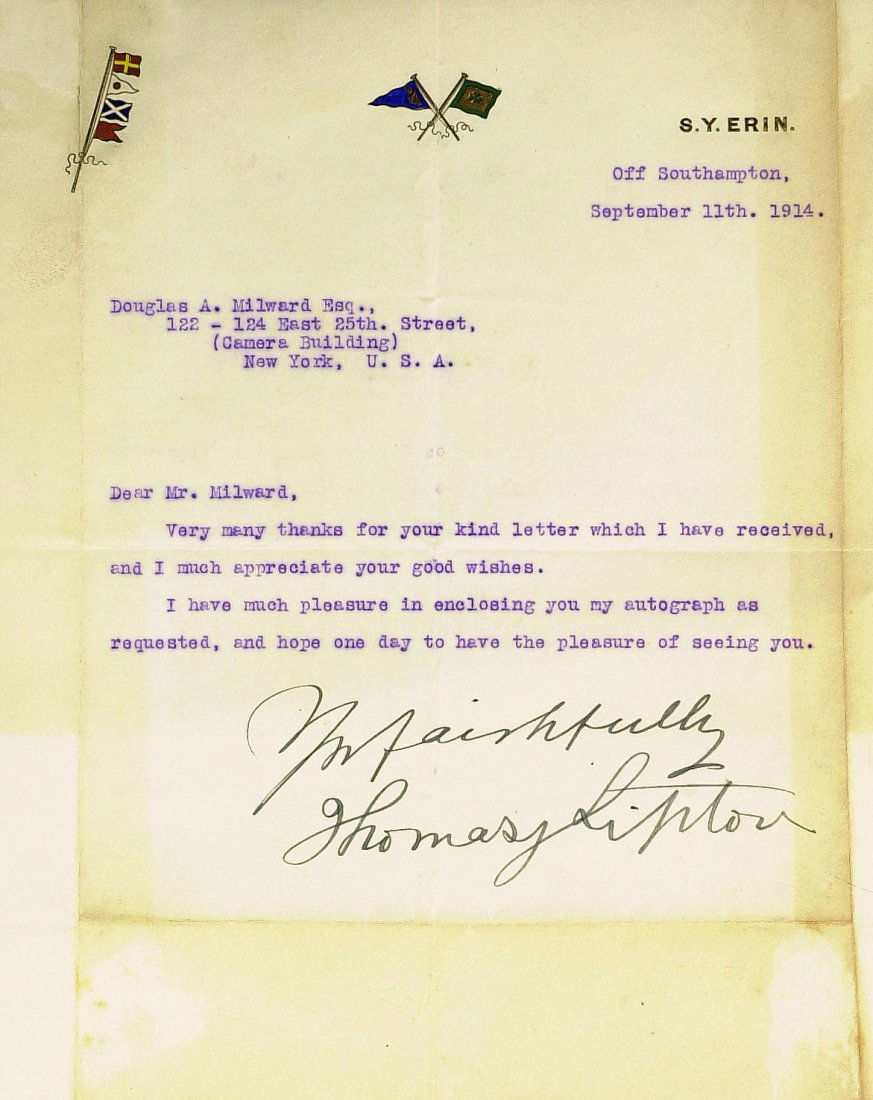 S.Y. ERIN.
Off Southampton,
September 11th. 1914.
Douglas A. Milward Esq.,
122 - 124 East 25th. Street,
(Camera Building)
New York, U. S. A.
Dear Mr. Milward,
Very many thanks for your kind letter which I have received,
and I much appreciate your good wishes.
I have much pleasure in enclosing you my autograph as
requested, and hope one day to have the pleasure of seeing you.
Yrs faithfully
Thomas J Lipton